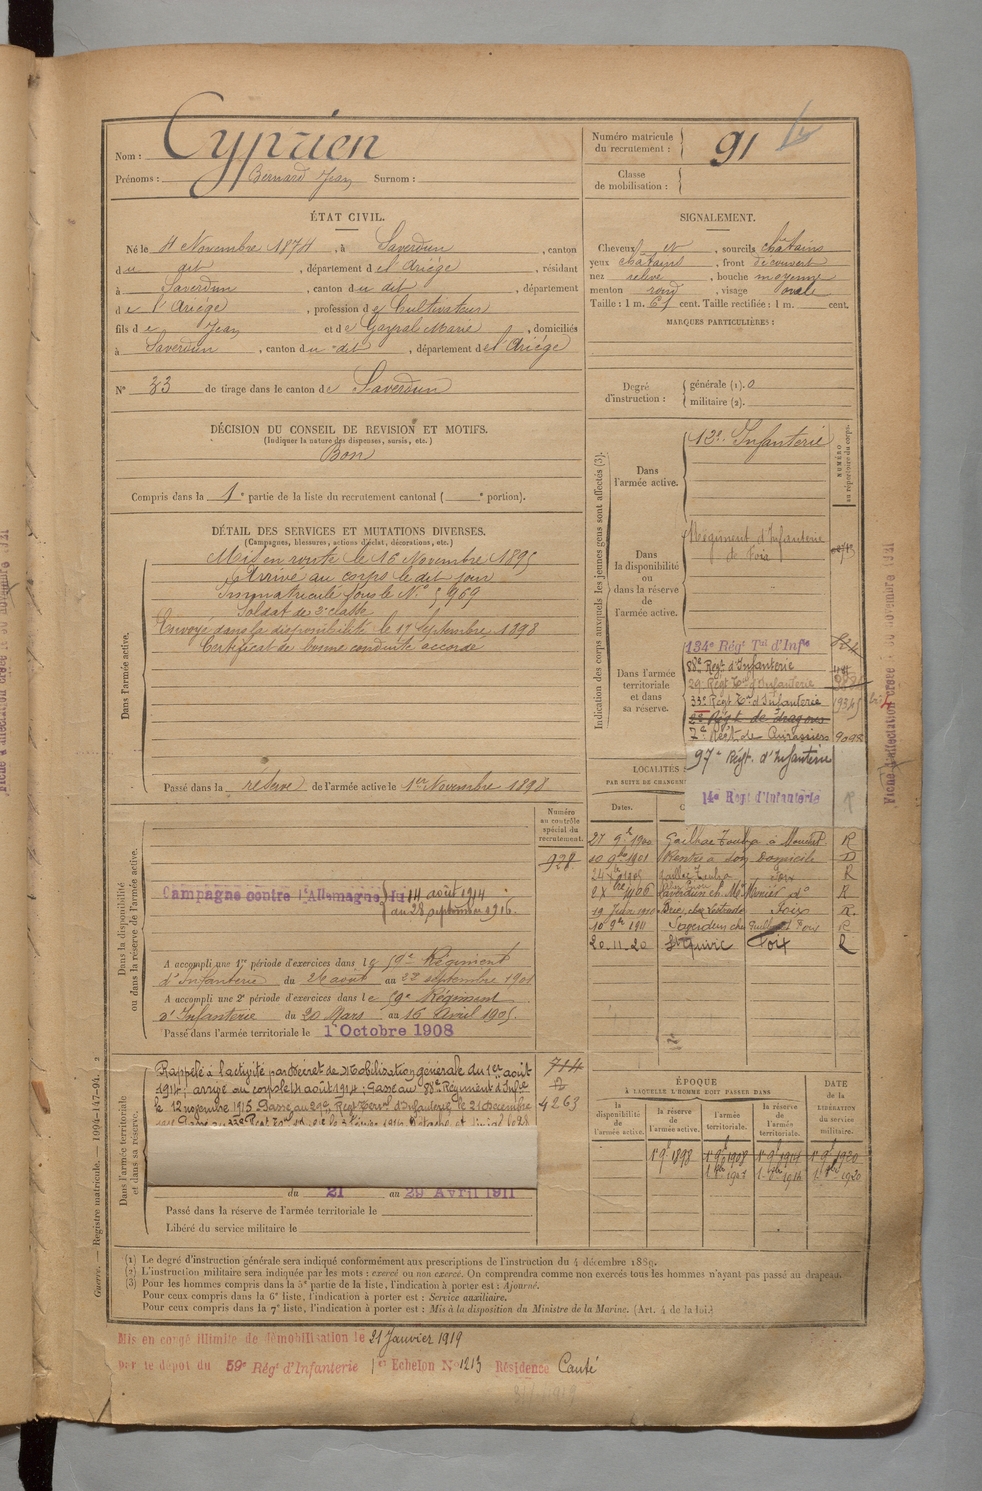 Nom : Cyprien
Prénoms : Bernard Jean Surnom :
Numéro matricule du recrutement : 91
Classe de mobilisation :
ÉTAT CIVIL.
Né le 4 Novembre 1874, à Saverdun, canton
du dit, département de l'Ariège, résidant
à Saverdun, canton du dit, département
de l'Ariège, profession de Cultivateur
fils de Jean et de Gayral Marie, domiciliés
à Saverdun, canton du dit, département de l'Ariège
N° 33 de tirage dans le canton de Saverdun
SIGNALEMENT.
Cheveux et, sourcils châtains
yeux châtains, front découvert
nez relevé, bouche moyenne
menton rond, visage ovale
Taille : 1 m. 61 cent. Taille rectifiée : 1 m. cent.
MARQUES PARTICULIÈRES :
Degré d'instruction : générale (1). 0
militaire (2).
DÉCISION DU CONSEIL DE REVISION ET MOTIFS.
(Indiquer la nature des dispenses, sursis, etc.)
Bon
Compris dans la 1e partie de la liste du recrutement cantonal ( e portion).
DÉTAIL DES SERVICES ET MUTATIONS DIVERSES.
(Campagnes, blessures, actions d'éclat, décorations, etc.)
Dans l'armée active.
Mis en route le 16 Novembre 1895
Arrivé au corps le dit jour
Immatriculé sous le N° 5969
Soldat de 2e classe
Envoyé dans la disponibilité le 17 Septembre 1898
Certificat de bonne conduite accordé
Passé dans la réserve de l'armée active le 1er Novembre 1898
Indication des corps auxquels les jeunes gens sont affectés (3).
NUMÉRO au répertoire du corps.
Dans l'armée active.
12e Infanterie
Dans la disponibilité ou dans la réserve de l'armée active.
Régiment d'Infanterie
de Foix
Dans l'armée territoriale et dans sa réserve.
134e Régt Tal d'Infie
88e Régt d'Infanterie
29e Régt Tal d'Infanterie
33e Régt Tal d'Infanterie
Régt de dragons
7e Régt de Cuirassiers 9098
97e Régt. d'Infanterie
14e Régt d'Infanterie
LOCALITÉS
PAR SUITE DE CHANGEM
Dates.
27 9bre 1900 R
10 9bre 1901 Rentré à son Domicile D
R
R
R
R
20.11.20 St Quirc Foix R
Dans la disponibilité ou dans la réserve de l'armée active.
Numéro au contrôle spécial du recrutement.
928
Campagne contre l'Allemagne, du 14 août 1914
au 28 septembre 1916.
A accompli une 1re période d'exercices dans le 59e Régiment
d'Infanterie du 26 août au 22 septembre 1901
A accompli une 2e période d'exercices dans le 59e Régiment
d'Infanterie du 20 Mars au 16 Avril 1905
Passé dans l'armée territoriale le 1 Octobre 1908
Dans l'armée territoriale et dans sa réserve.
714
4263
Rappelé à l'activité par Décret de Mobilisation générale du 1er août
1914; arrivé au corps le 14 août 1914; Passé au 88e Régiment d'Infie
le 12 novembre 1915 Passé au 29e Régt Terral d'Infanterie, le 21 Décembre
du 21 au 29 Avril 1911
Passé dans la réserve de l'armée territoriale le
Libéré du service militaire le
ÉPOQUE
À LAQUELLE L'HOMME DOIT PASSER DANS
la disponibilité de l'armée active.
la réserve de l'armée active.
l'armée territoriale.
la réserve de l'armée territoriale.
DATE de la LIBÉRATION du service militaire.
1er 9bre 1898 1er 9bre 1908 1er 9bre 1914 1er 9bre 1920
(1) Le degré d'instruction générale sera indiqué conformément aux prescriptions de l'instruction du 4 décembre 1889.
(2) L'instruction militaire sera indiquée par les mots : exercé ou non exercé. On comprendra comme non exercés tous les hommes n'ayant pas passé au drapeau.
(3) Pour les hommes compris dans la 5e partie de la liste, l'indication à porter est : Ajourné.
Pour ceux compris dans la 6e liste, l'indication à porter est : Service auxiliaire.
Pour ceux compris dans la 7e liste, l'indication à porter est : Mis à la disposition du Ministre de la Marine. (Art. 4 de la loi.)
Mis en congé illimité de démobilisation le 21 Janvier 1919
par le dépôt du 59e Régt d'Infanterie 1er Echelon N° 1213 Résidence Canté
Guerre. — Registre matricule. — 1094-147-94.